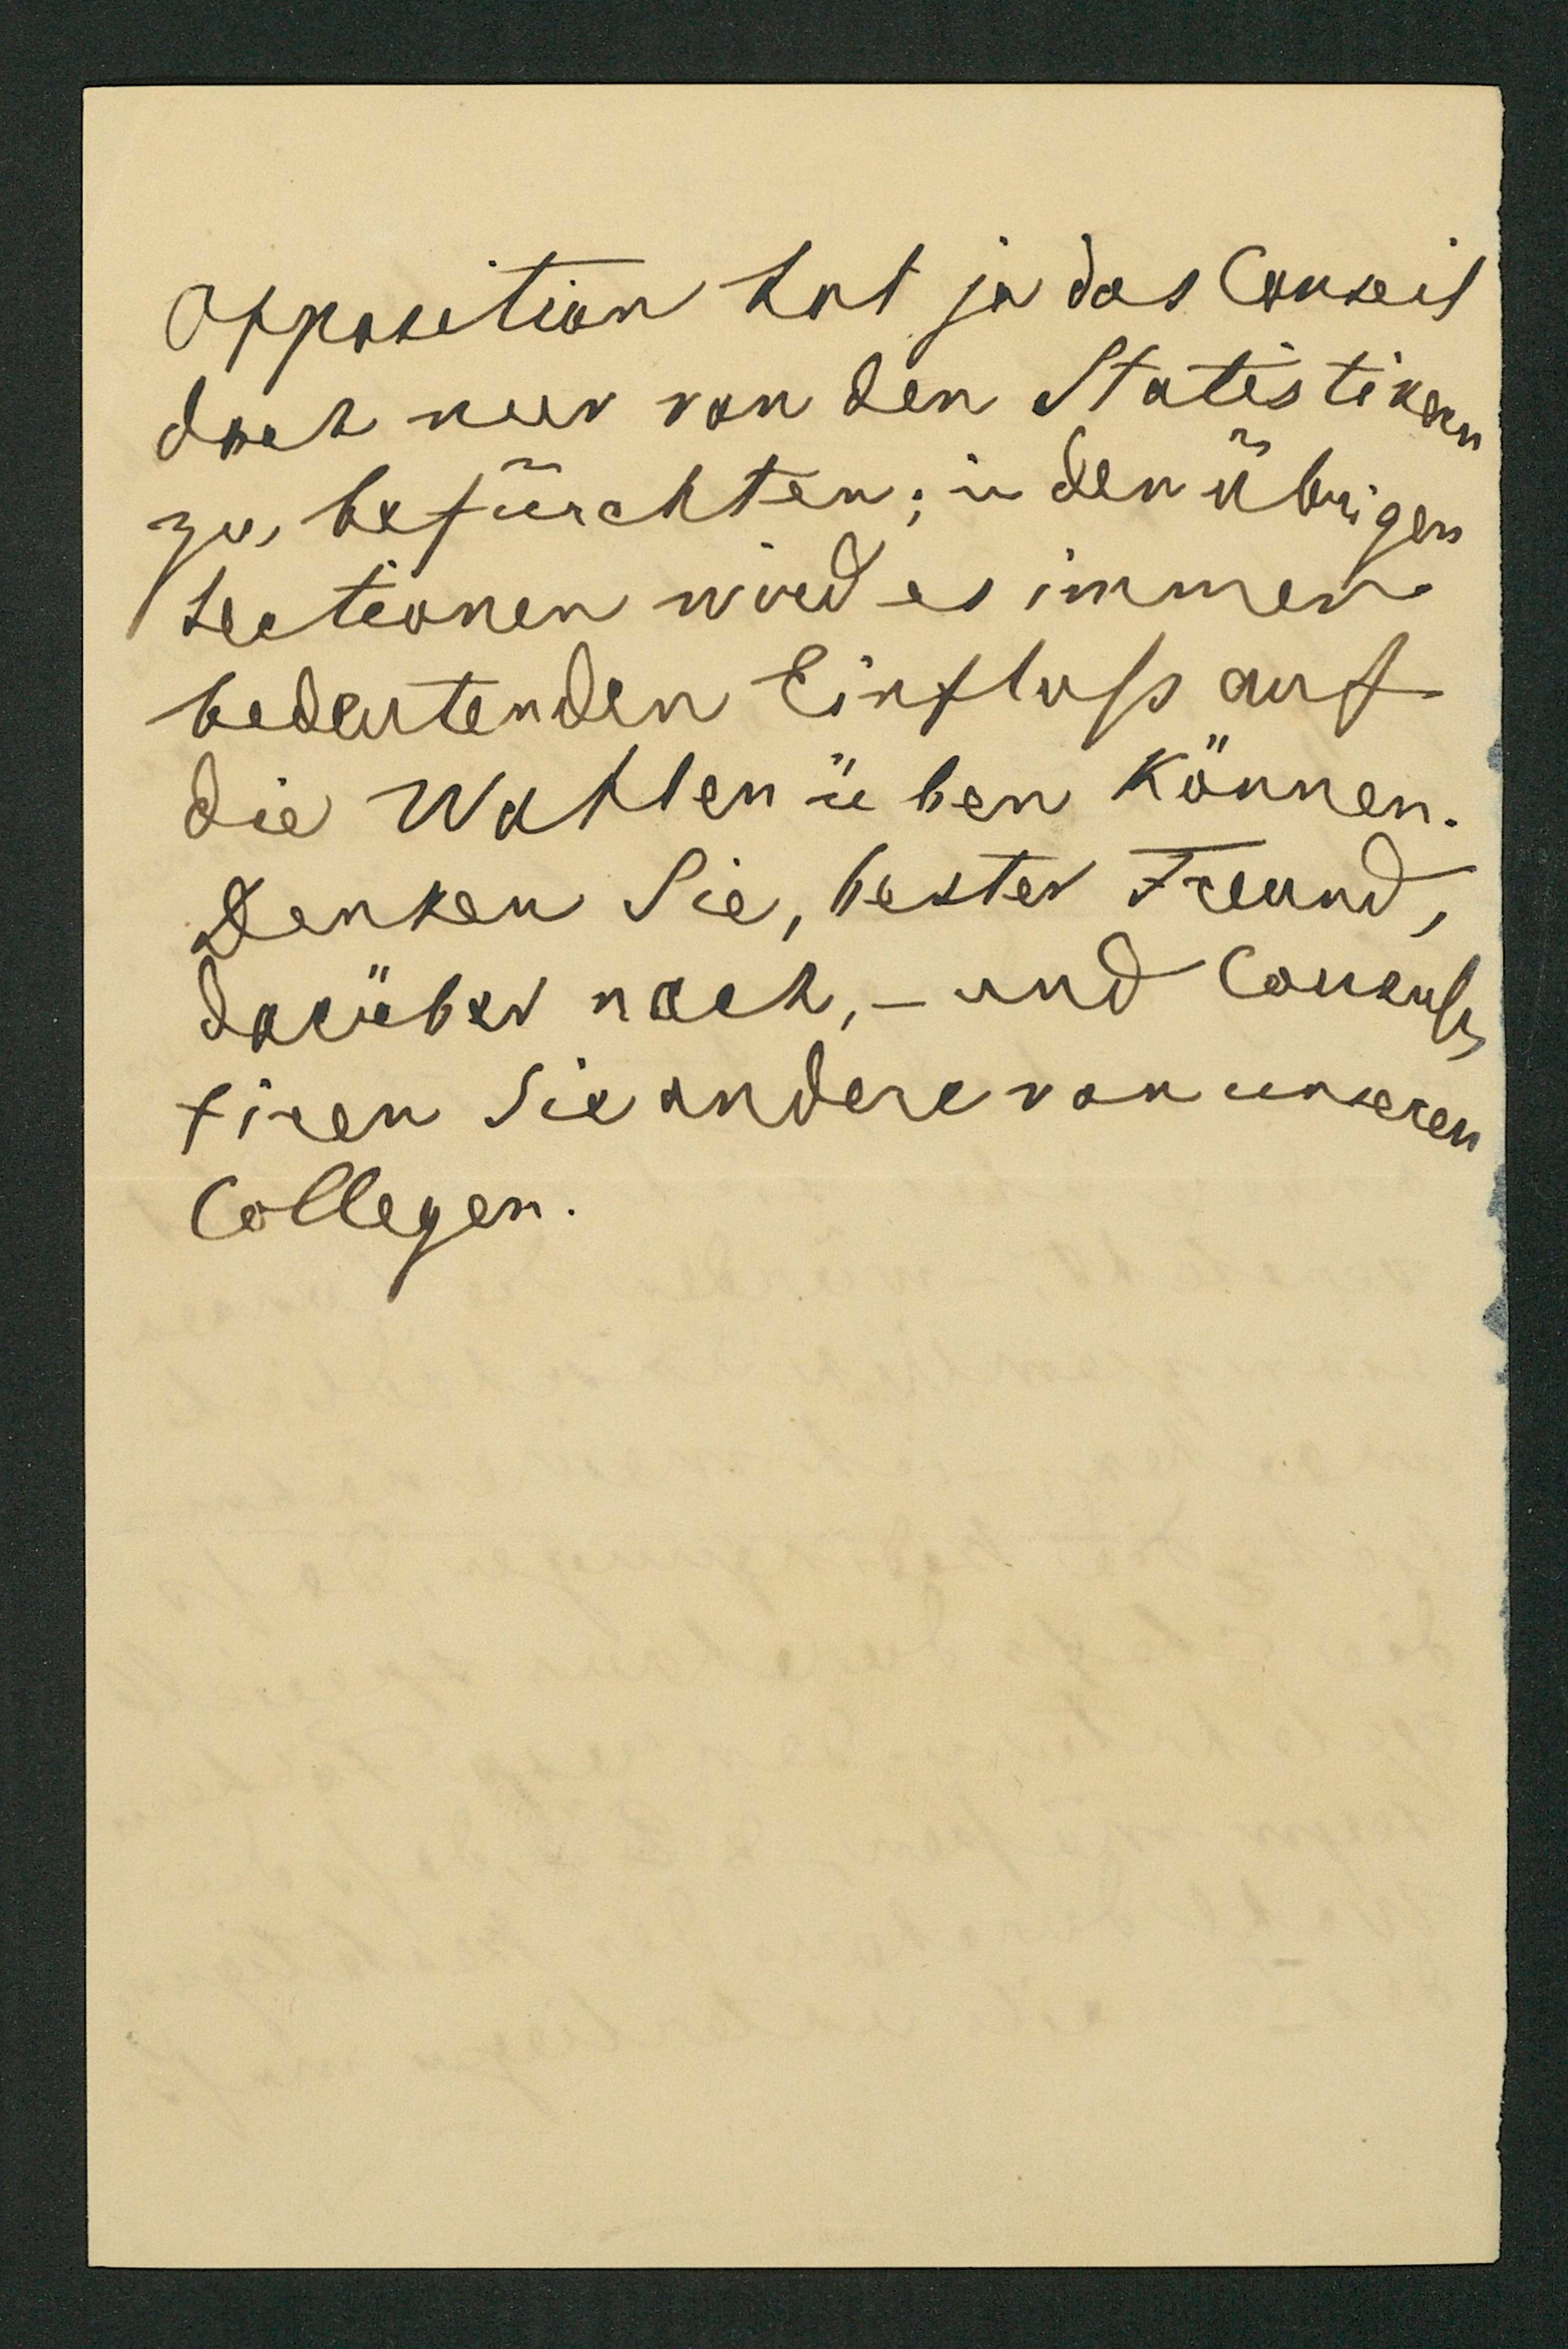 Opposition hat ja das Conseil
doch nur von den Statistikern
zu befürchten; in den übrigen
Sectionen wird es immer
bedeutenden Einfluß auf
die Wahlen üben können.
Denken Sie, bester Freund,
darüber nach, – und Consul
tiren Sie andere von unseren
Collegen.